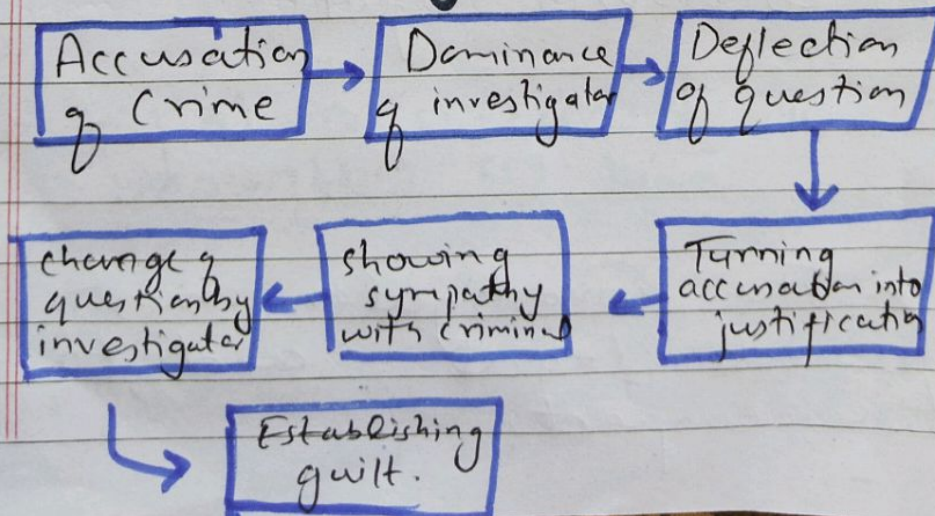 Accusation
of Crime
Dominance
of investigator
Deflection
of question
Turning
accusation into
justification
showing
sympathy
with criminal
change of
question by
investigator
Establishing
guilt.